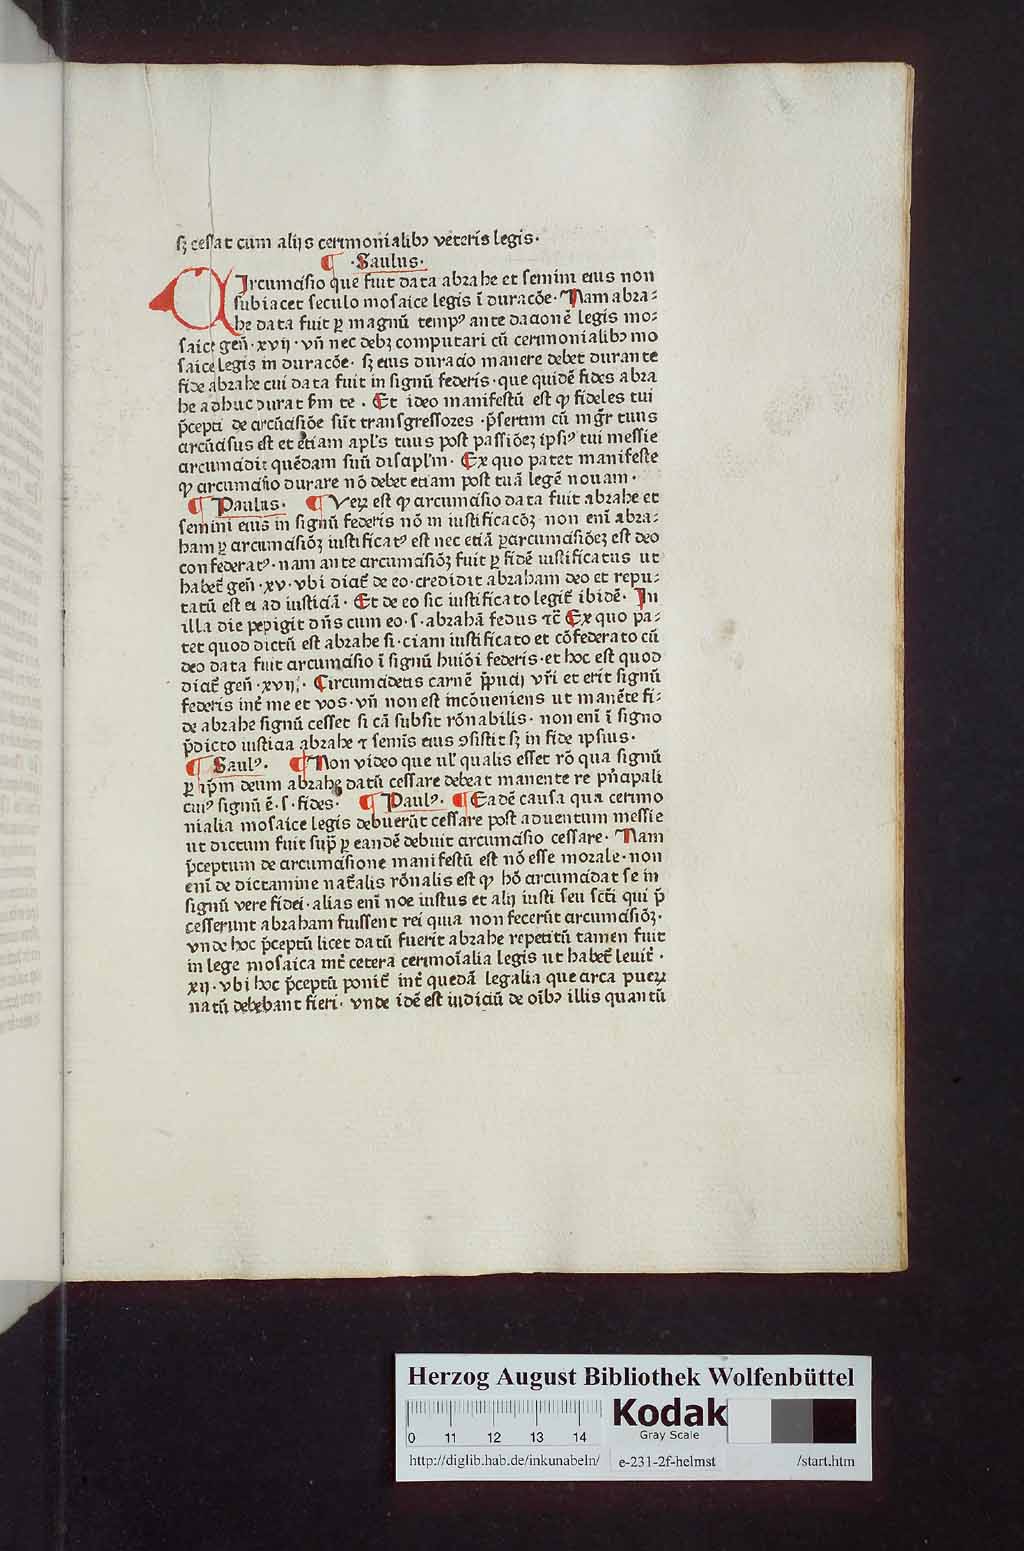 sꝫ cessat cum alijs cerimonialibꝰ veteris legis·
¶ ·Saulus·
CIrcumcisio que fuit data abrahe et semini eius non
subiacet seculo mosaice legis ī duracōe· Nam abra⸗
he data fuit ꝑ magnū tempꝰ ante dacionē legis mo⸗
saice geñ·xvij· vñ nec debꝫ computari cū cerimonialibꝰ mo
saice legis in duracōe· sꝫ eius duracio manere debet durante
fide abrahe cui data fuit in signū federis· que quidē fides abra
he adhuc durat ẜm te · Et ideo manifestū est ꝙ fideles tui
p̄cepti de circūcisiōe sūt transgressores ·p̄sertim cū mgr̄ tuus
circūcisus est et etiam apl's tuus post passiōeꝫ ipsiꝰ tui messie
circumcidit quēdam suū discipl'm · Ex quo patet manifeste
ꝙ circumcisio durare nō debet etiam post tuā legē nouam ·
¶ Paulus· ¶ Veꝝ est ꝙ circumcisio data fuit abrahe et
semini eius in signū federis nō in iustificacōꝫ non enī abra⸗
ham ꝑ circumcisiōꝫ iustificatꝰ est nec etiā ꝑcircumcisiōeꝫ est deo
confederatꝰ· nam ante circumcisiōꝫ fuit ꝑ fidē iustificatus ut
habet̄ geñ·xv·vbi dicit̄ de eo·credidit abraham deo et repu⸗
tatū est ei ad iusticiā· Et de eo sic iustificato legit̄ ibidē· In
illa die pepigit dn̄s cum eo·s·abrahā fedus ⁊c̄ Ex quo pa⸗
tet quod dictū est abrahe si·ciam iustificato et cōfederato cū
deo data fuit circumcisio ī signū huiōi federis·et hoc est quod
dicit̄ geñ·xvij·. Circumcidetis carnē p̄pucij vr̄i et erit signū
federis int̄ me et vos· vñ non est incōueniens ut manēte fi⸗
de abrahe signū cesset si cā subsit rōnabilis· non enī ī signo
p̄dicto iusticia abrahe ⁊ semīs eius ꝯsistit sꝫ in fide ipsius·
¶ Saulꝰ. ¶ Non video que ul' qualis esset rō qua signū
ꝑ ip̄m deum abrahe datū cessare debeat manente re pn̄cipali
cuiꝰ signū ē·s·fides· ¶ Paulꝰ. ¶ Eadē causa qua cerimo
nialia mosaice legis debuerūt cessare post aduentum messie
ut dictum fuit sup̄ ꝑ eandē debuit circumcisio cessare· Nam
p̄ceptum de circumcisione manifestū est nō esse morale·non
enī de dictamine nat̄alis rōnalis est ꝙ hō circumcidat se in
signū vere fidei·alias enī noe iustus et alij iusti seu scti qui p̄
cesserunt abraham fuissent rei quia non fecerūt circumcisiōꝫ·
vnde hoc p̄ceptū licet datū fuerit abrahe repetitū tamen fuit
in lege mosaica int̄ cetera cerimoīalia legis ut habet̄ leuit̄ ·
xij·vbi hoc p̄ceptū ponit̄ int̄ quedā legalia que circa pueꝝ
natū debebant fieri· vnde idē est iudiciū de oībꝰ illis quantū
Herzog August Bibliothek Wolfenbüttel
0 11 12 13 14
Kodak
Gray Scale
http://diglib.hab.de/inkunabeln/ e-231-2f-helmst /start.htm